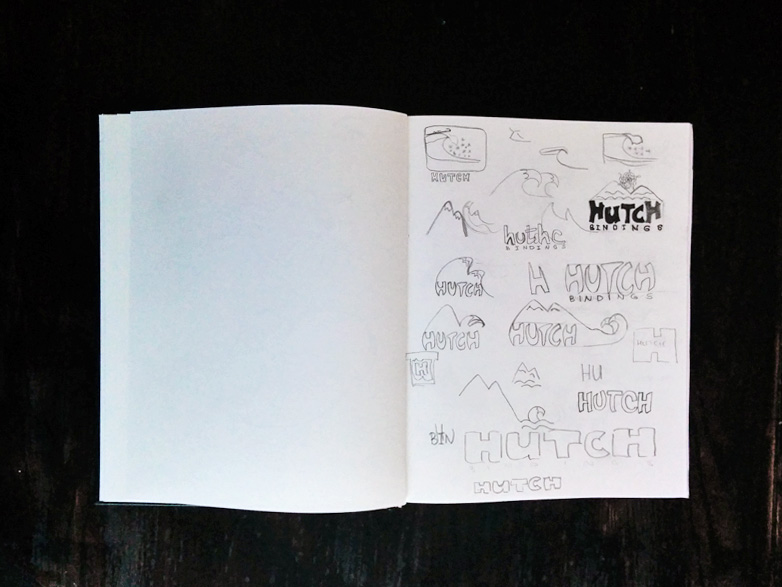 HUTCH
HUTCH
BINDINGS
huthc
BINDINGS
HUTCH
H
HUTCH
BINDINGS
HUTCH
HUTCH
HUTCH
H
HU
HUTCH
BIN
HUTCH
BINDINGS
HUTCH